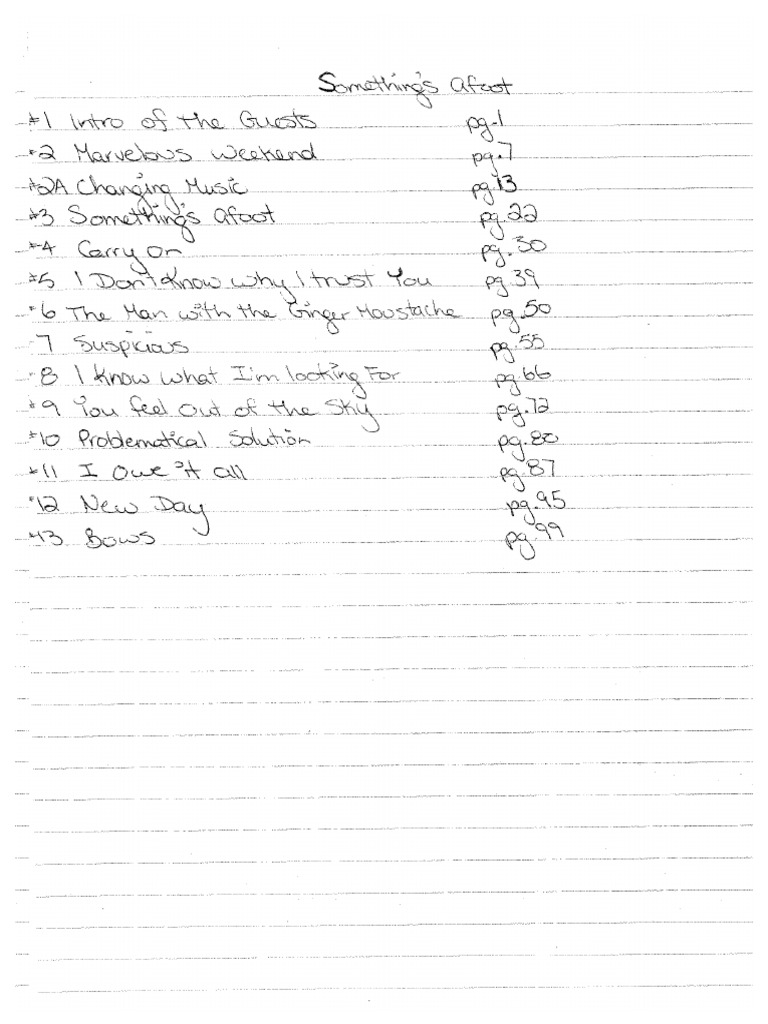 Something's Afoot
#1 Intro of the Guests pg.1
#2 Marvelous Weekend pg.7
#2A Changing Music pg.13
#3 Something's Afoot pg.22
#4 Carry On pg.30
#5 I Don't Know why I trust You pg.39
#6 The Man with the Ginger Moustache pg.50
7 Suspicious pg.55
#8 I Know what I'm looking For pg.66
#9 You feel Out of the Sky pg.72
#10 Problematical Solution pg.80
#11 I Owe it all pg.87
#12 New Day pg.95
#13 Bows pg.99